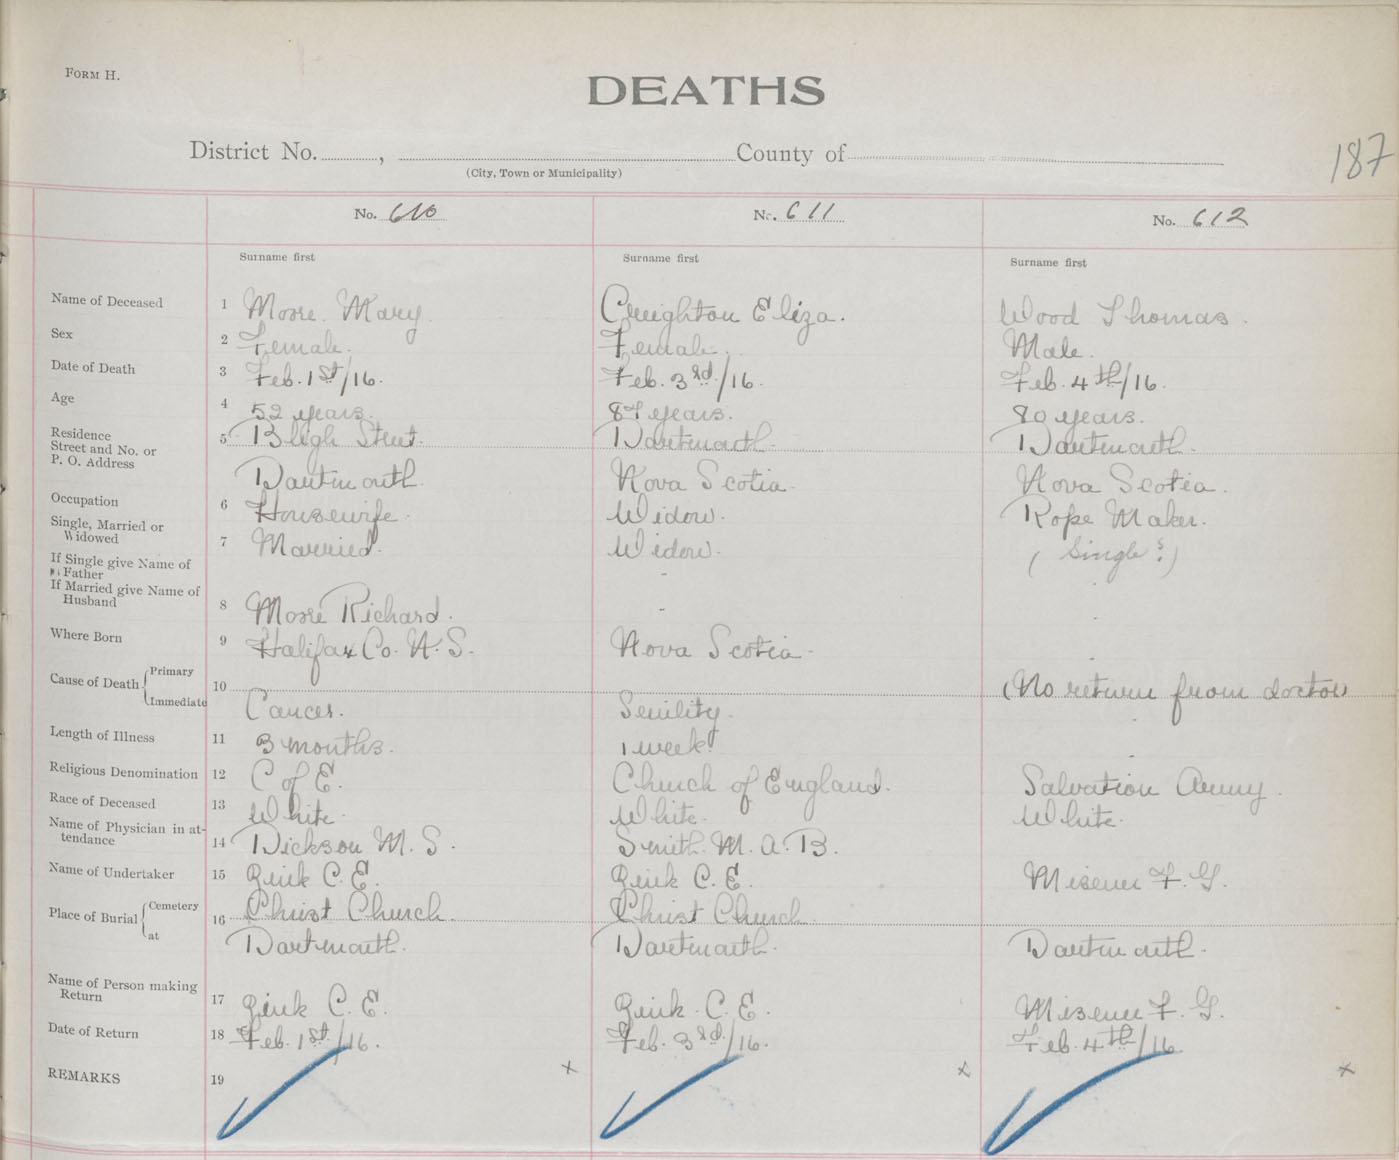 FORM H.
DEATHS
187
District No. , County of
(City, Town or Municipality)
No. 610 No. 611 No. 612
Surname first Surname first Surname first
Name of Deceased 1 Moore Mary. Creighton Eliza. Wood Thomas.
Sex 2 Female. Female. Male.
Date of Death 3 Feb. 1st/16. Feb. 3rd/16. Feb. 4th/16.
Age 4 52 years. 87 years. 80 years.
Residence 5 Bligh Street. Dartmouth. Dartmouth.
Street and No. or
P. O. Address Dartmouth. Nova Scotia. Nova Scotia.
Occupation 6 Housewife. Widow. Rope Maker.
Single, Married or
Widowed 7 Married. Widow. (Single?)
If Single give Name of
Father - -
If Married give Name of
Husband 8 Moore Richard. - -
Where Born 9 Halifax Co. N.S. Nova Scotia. -
Cause of Death Primary 10 (No return from doctor)
Immediate Cancer. Senility. -
Length of Illness 11 3 months. 1 week. -
Religious Denomination 12 C of E. Church of England. Salvation Army.
Race of Deceased 13 White. White. White.
Name of Physician in at-
tendance 14 Dickson M. S. Smith. M. A. B.
Name of Undertaker 15 C. E. C. E. Misener F. G.
Place of Burial Cemetery 16 Christ Church. Christ Church.
at Dartmouth. Dartmouth. Dartmouth.
Name of Person making
Return 17 C. E. C. E. Misener F. G.
Date of Return 18 Feb. 1st/16. Feb. 3rd/16. Feb. 4th/16.
REMARKS 19 x x x